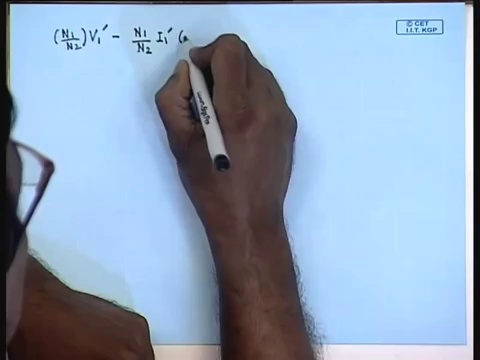 (N1/N2) V1′ − N1/N2 I1′ (
© CET
I.I.T. KGP